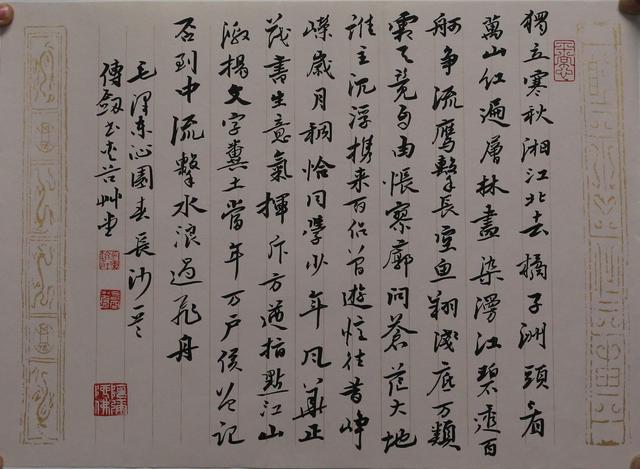 獨立寒秋湘江北去橘子洲頭看
萬山红遍層林盡染漫江碧透百
舸争流鹰擊長空鱼翔淺底万類
霜天竞自由悵寥廓問蒼茫大地
誰主沉浮携来百侣曾遊忆往昔峥
嵘歲月稠恰同學少年风華正
茂書生意氣揮斥方遒指點江山
激揚文字糞土當年万户侯曾记
否到中流擊水浪遏飛舟
毛澤东沁園春長沙
傅艸堂